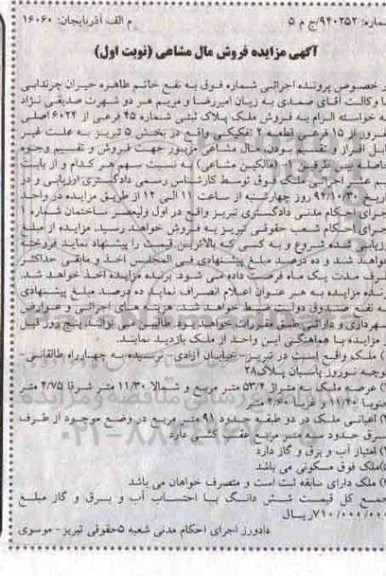 شماره: ۹۴۰۲۵۲/ج م ۵ م الف آذربایجان: ۱۶۰۶۰
آگهی مزایده فروش مال مشاعی (نوبت اول)
در خصوص پرونده اجرائی شماره فوق به نفع خانم طاهره حیران چرندابی
با وکالت آقای صمدی به زیان امیررضا و مریم هر دو شهرت صدیقی نژاد
به خواسته الزام به فروش ملک پلاک ثبتی شماره ۴۵ فرعی از ۶۰۲۲ اصلی
مفروز از ۱۵ فرعی قطعه ۲ تفکیکی واقع در بخش ۵ تبریز به علت غیر
قابل افراز و تقسیم بودن، مال مشاعی مزبور جهت فروش و تقسیم وجوه
حاصله بین طرفین (مالکین مشاعی) به نسبت سهم هر کدام و از بابت
نیم عشر اجرائی ملک فوق توسط کارشناس رسمی دادگستری ارزیابی و در
تاریخ ۹۴/۱۰/۳۰ روز چهارشنبه از ساعت ۱۱ الی ۱۲ از طریق مزایده در واحد
اجرای احکام مدنی دادگستری تبریز واقع در اول ولیعصر ساختمان شماره ۱
اجرای احکام شعب حقوقی تبریز به فروش خواهد رسید. مزایده از مبلغ
ارزیابی شده شروع و به کسی که بالاترین قیمت را پیشنهاد نماید فروخته
خواهد شد و ده درصد مبلغ پیشنهادی فی المجلس اخذ و مابقی حداکثر
در مدت یک ماه فرصت داده می شود. برنده مزایده اخذ خواهد شد
برنده مزایده به هر عنوان اعلام انصراف نماید ده درصد مبلغ پیشنهادی
به نفع صندوق دولت ضبط خواهد شد. هزینه های اجرائی و عوارض
شهرداری و دارائی طبق مقررات خواهد بود. طالبین می توانند پنج روز قبل
از مزایده با هماهنگی این واحد از ملک بازدید نمایند.
۱) ملک واقع است در تبریز- خیابان آزادی- نرسیده به چهارراه طالقانی-
کوچه نوروز پاسبان پلاک ۲۸
عرصه ملک به متراژ ۵۳/۲ متر مربع و شمالا ۱۱/۳۰ متر شرقا ۴/۷۵ متر
جنوبا ۱۱/۲۰ و غربا متر
اعیانی ملک در دو طبقه حدود ۹۱ متر مربع در وضع موجود از طرف
شرق حدود متر مربع عقب کشی دارد
امتیاز آب و برق و گاز دارد
ملک فوق مسکونی می باشد
ملک دارای سابقه ثبت است و متصرف خواهان می باشد
جمع کل قیمت شش دانگ با احتساب آب و برق و گاز مبلغ
۷۱۰/۰۰۰/۰۰۰ ریال
دادورز اجرای احکام مدنی شعبه ۵ حقوقی تبریز- موسوی